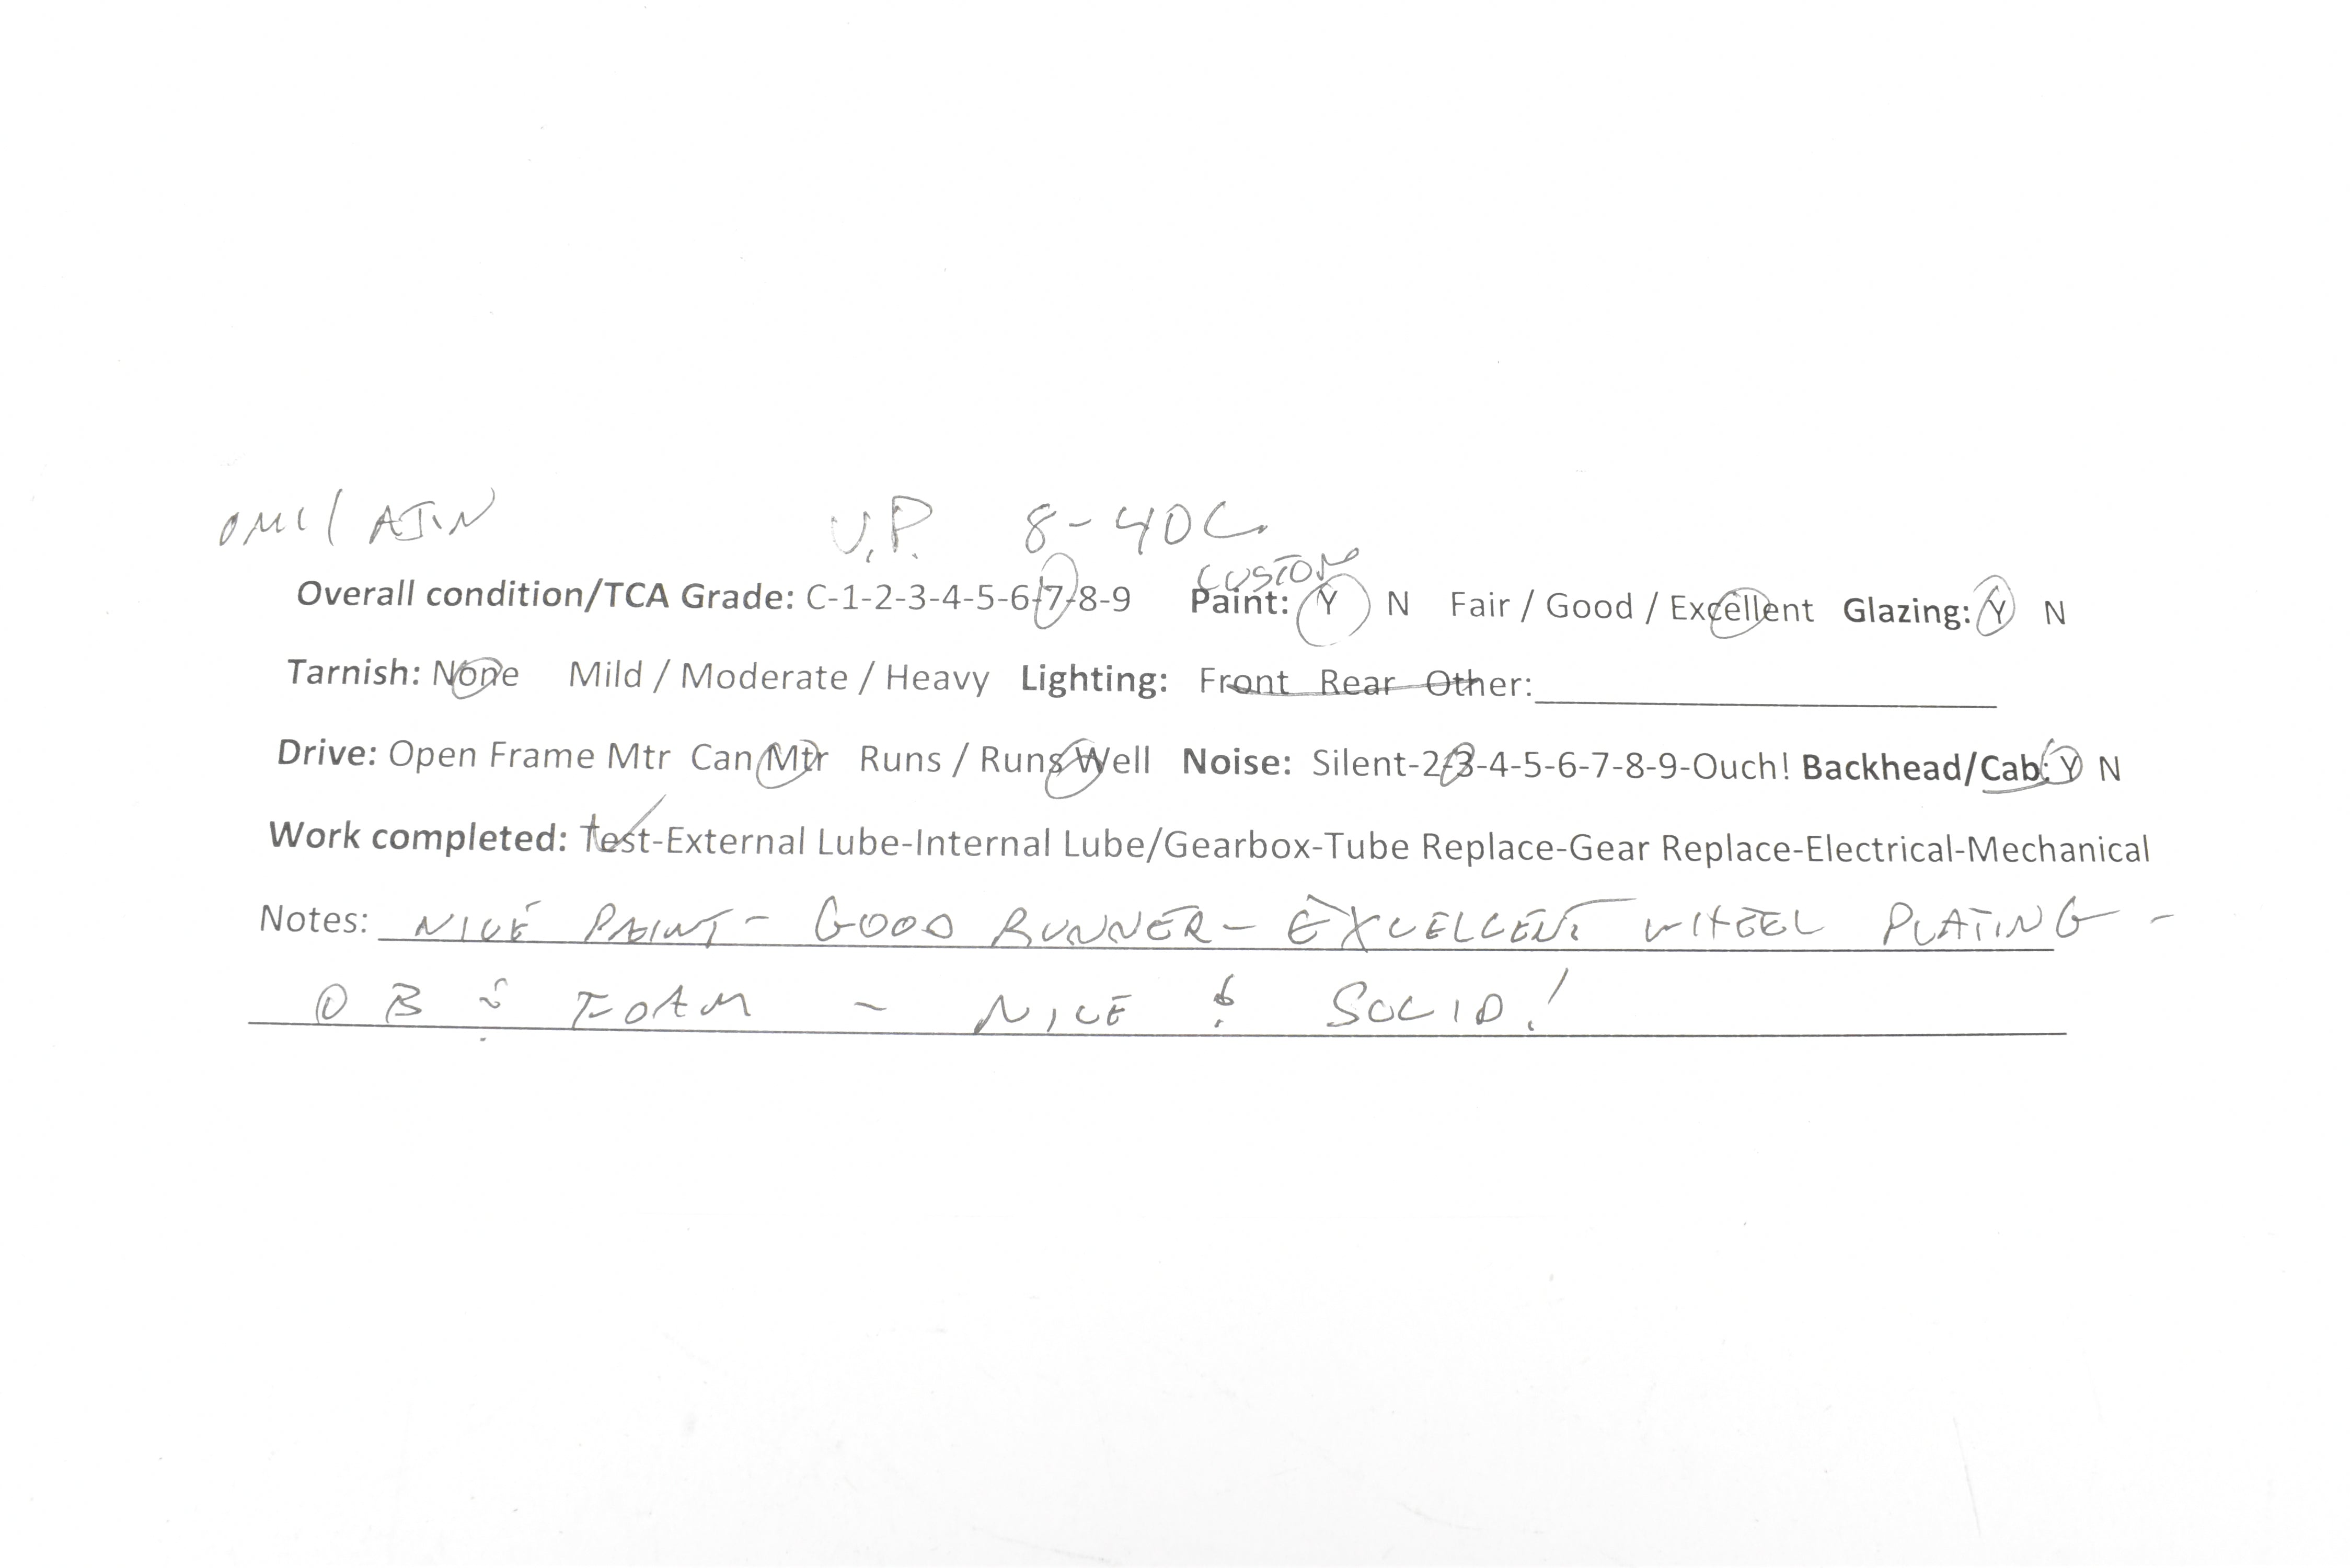 OMI/AJIN U.P. 8-40C
CUSTOM
Overall condition/TCA Grade: C-1-2-3-4-5-6-7-8-9 Paint: Y N Fair / Good / Excellent Glazing: Y N
Tarnish: None Mild / Moderate / Heavy Lighting: Front Rear Other:
Drive: Open Frame Mtr Can Mtr Runs / Runs Well Noise: Silent-2-3-4-5-6-7-8-9-Ouch! Backhead/Cab: Y N
Work completed: Test-External Lube-Internal Lube/Gearbox-Tube Replace-Gear Replace-Electrical-Mechanical
Notes: NICE PAINT - GOOD RUNNER - EXCELLENT WHEEL PLATING -
OB & FOAM - NICE & SOLID!